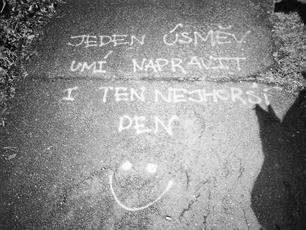 JEDEN ÚSMĚV
UMÍ NAPRAVIT
I TEN NEJHORŠÍ
DEN